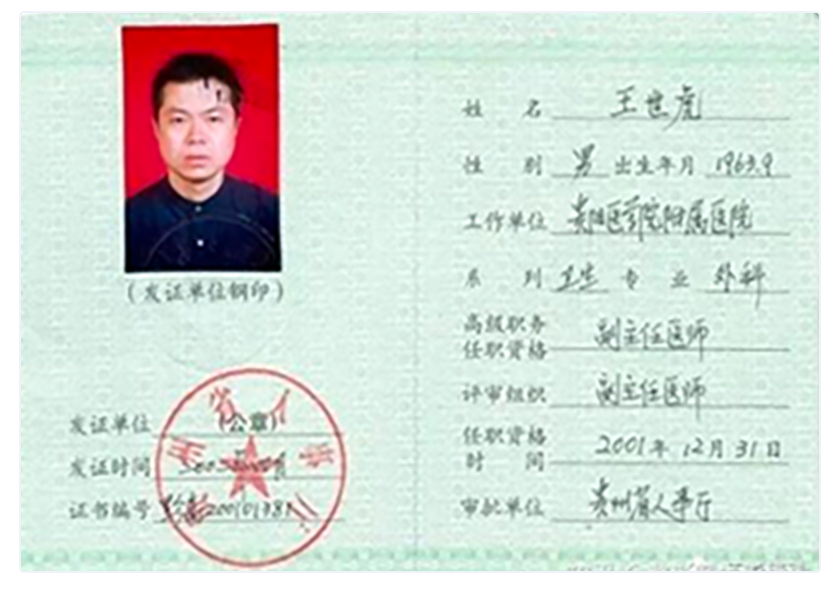 (发证单位钢印)
发证单位 (公章)
发证时间
证书编号
姓 名 王世虎
性 别 男 出生年月 1963.9
工作单位 贵阳医学院附属医院
系 列 卫生 专 业 外科
高级职务
任职资格 副主任医师
评审组织 副主任医师
任职资格
时 间 2001年12月31日
审批单位 贵州省人事厅